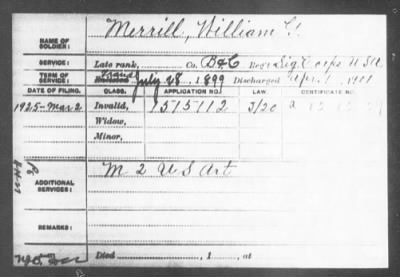 NAME OF SOLDIER: Merrill, William
SERVICE: Late rank, Co. B&C Reg't Sig. Corps U.S.A
TERM OF SERVICE: Enlisted July 28, 1899 Discharged Apr 1, 1901
DATE OF FILING. CLASS. APPLICATION NO. LAW. CERTIFICATE NO.
1925-Mar 2 Invalid, 1515112 3/20
Widow,
Minor,
ADDITIONAL SERVICES: M 2 U S Art
REMARKS:
Died , 1 , at